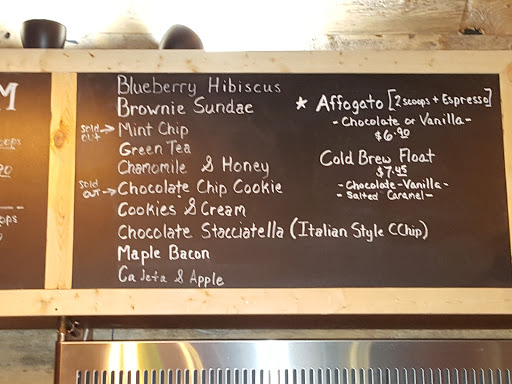 M
Blueberry Hibiscus
Brownie Sundae
sold out → Mint Chip
Green Tea
Chamomile & Honey
sold out → Chocolate Chip Cookie
Cookies & Cream
Chocolate Stacciatella (Italian Style CChip)
Maple Bacon
Cajeta & Apple
★ Affogato [2 scoops + Espresso]
- Chocolate or Vanilla -
$6.90
Cold Brew Float
$7.45
- Chocolate - Vanilla -
- Salted Caramel -